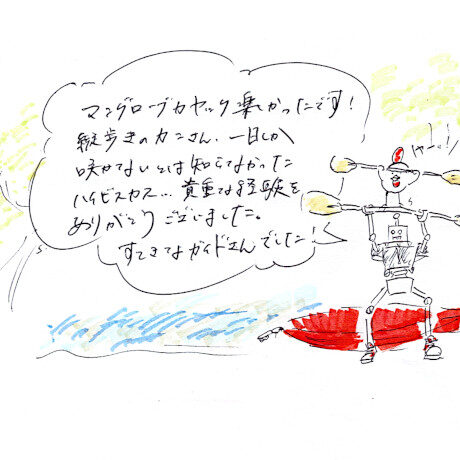 マングローブカヤック楽しかったです!
縦歩きのカニさん、一日しか
咲かないとは知らなかった
ハイビスカス…貴重な経験を
ありがとうございました。
すてきなガイドさんでした!